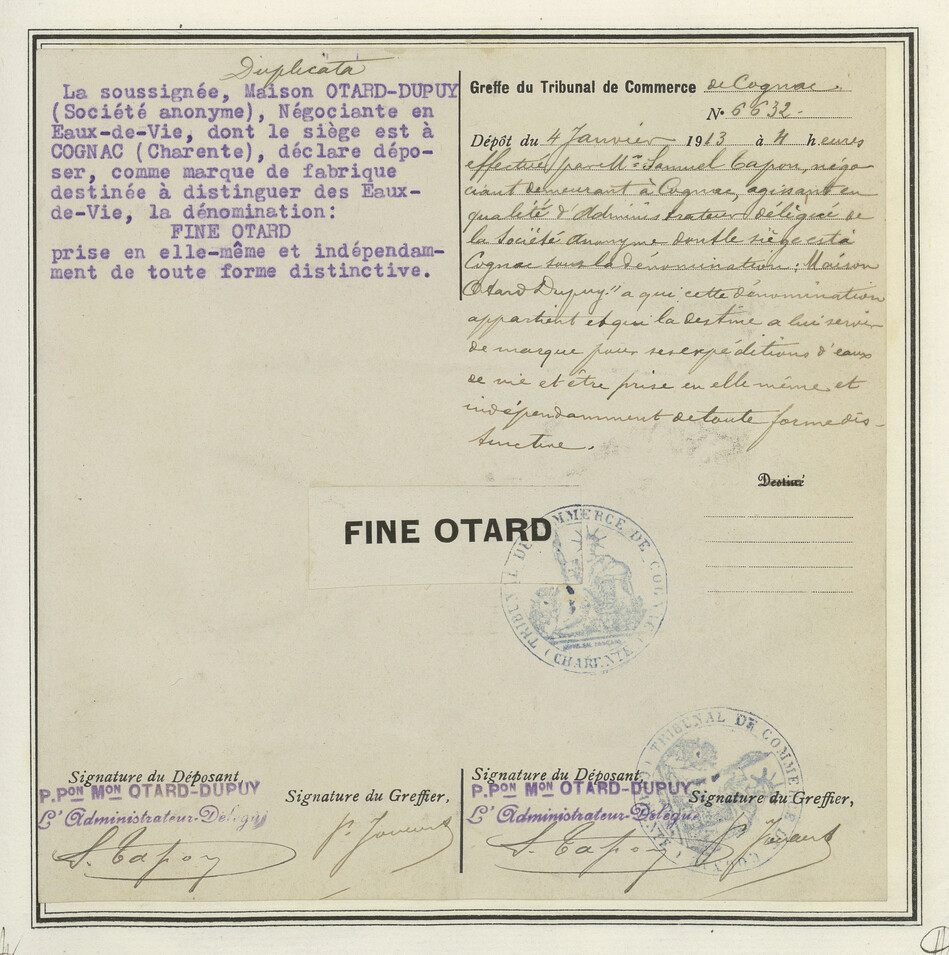 Duplicata
La soussignée, Maison OTARD-DUPUY
(Société anonyme), Négociante en
Eaux-de-Vie, dont le siège est à
COGNAC (Charente), déclare dépo-
ser, comme marque de fabrique
destinée à distinguer des Eaux-
de-Vie, la dénomination:
FINE OTARD
prise en elle-même et indépendam-
ment de toute forme distinctive.
Greffe du Tribunal de Commerce de Cognac.
N° 6632-
Dépôt du 4 Janvier 1913 à 4 heures
effectué par Mr Samuel Tapon, négo-
ciant demeurant à Cognac, agissant en
qualité d'Administrateur délégué de
la Société Anonyme dont le siège est à
Cognac sous la dénomination: "Maison
Otard Dupuy" a qui cette dénomination
appartient et qui la destine a lui servir
de marque pour ses expéditions d'eaux
de vie et être prise en elle même et
indépendamment de toute forme dis-
tinctive.
Destiné
FINE OTARD
TRIBUNAL DE COMMERCE DE COGNAC
(CHARENTE)
Signature du Déposant,
P.PON MON OTARD-DUPUY
L'Administrateur-Délégué
S. Tapon
Signature du Greffier,
Signature du Déposant,
P.PON MON OTARD-DUPUY
L'Administrateur-Délégué
S. Tapon
Signature du Greffier,
TRIBUNAL DE COMMERCE DE COGNAC